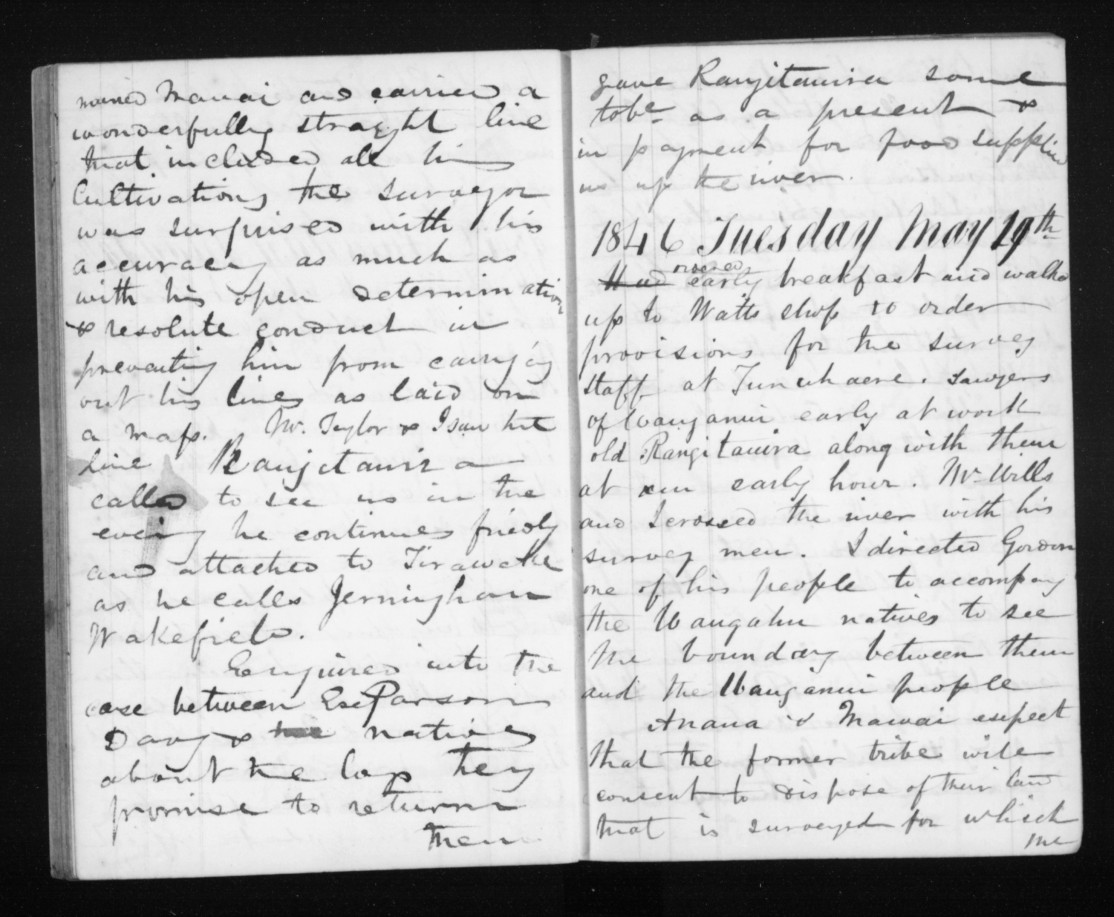 named Mawai and carried a
wonderfully straght line
that included all his
Cultivations the surveyor
was surprised with his
accuracy as much as
with his open determination
& resolute conduct in
preventing him from carryig
out his lines as laid on
a map. Mr. Taylor & I saw the
line Rangitauira
called to see us in the
eveing he continues friedly
and attached to Tirawake
as he calls Jerningham
Wakefield.
Enquired into the
case between Ex Parson
Davy & natives
about the they
promise to return
them
gave Rangitauira some
tobo. as a present &
in payment for food supplied
us up the river.
1846 Tuesday May 19th
early breakfast and walked
up to Watts shop to order
provisions for the survey
staff at Tunuhaere. Sawyers
of Wanganui early at work
old Rangitauira along with them
at an early hour. Mr Wills
and I crossed the river with his
survey men. I directed Gordon
one of his people to accompay
the Wangahu natives to see
the boundary between them
and the Wanganui people
Anaua & Mawai expect
that the former tribe will
consent to dispose of their land
that is surveyed for which
the